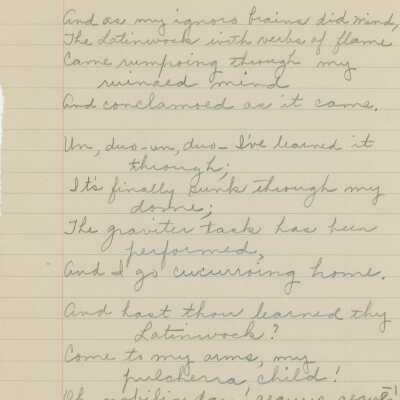 And as my ignoro brains did mind,
The Latinwock with verbs of flame
Came rumpoing through my
ruinaed mind
And conclamoed as it came.
Un, duo-un, duo- I've learned it
through;
It's finally sunk through my
dome;
The graviter task has been
performed,
And I go cucurroing home.
And hast thou learned thy
Latinwock?
Come to my arms, my
pulcherra child!